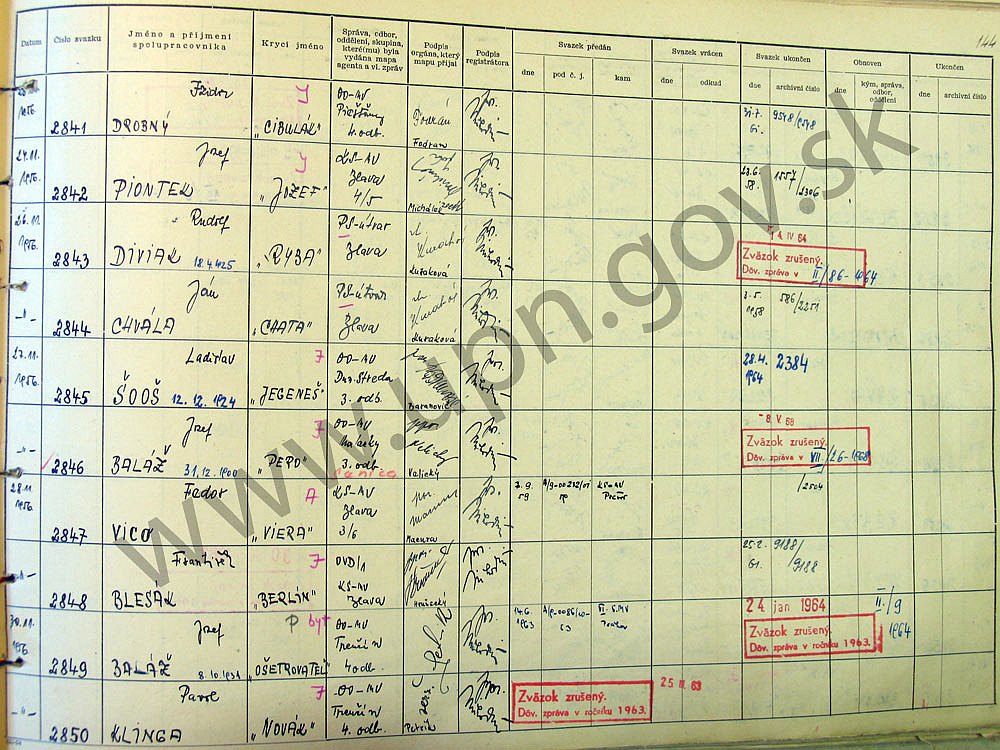 144
Datum
Číslo svazku
Jméno a příjmení
spolupracovníka
Krycí jméno
Správa, odbor,
oddělení, skupina,
které(mu) byla
vydána mapa
agenta a vl. zpráv
Podpis
orgána, který
mapu přijal
Podpis
registrátora
Svazek předán
dne
pod č. j.
kam
Svazek vrácen
dne
odkud
Svazek ukončen
dne
archivní číslo
Obnoven
dne
kým, správa,
odbor,
oddělení
Ukončen
dne
archivní číslo
1956.
2841
DROBNÝ
„CIBULÁK"
OO-MV
4. odb.
Fodran
9548/9548
24.11.
1956.
Jozef
2842
PIONTEK
„JOZEF"
KS-MV
Ilava
4/5
Michálek
23.6.
58.
1557/2306
26.11.
1956.
Rudolf
2843
DIVIAK 18.4.925
„RYBA"
PS-útvar
Ilava
Kuraková
14. IV 64
Zväzok zrušený.
Dôv. zpráva v II/86-464
-"-
Ján
2844
CHVÁLA
„CHATA"
PS-útvar
Ilava
Kuraková
3.5.
1958
586/2251
27.11.
1956.
Ladislav
2845
ŠOÓŠ 12.12.1924
„JEGENEŠ"
7
OO-MV
Dun. Streda
3. odb.
Baranovič
28.4.
1964
2384
-"-
Jozef
2846
BALÁŽ 31.12.1900
„PEPO"
7
OO-MV
Malacky
3. odb.
Senica
Valický
8. V. 68
Zväzok zrušený.
Dôv. zpráva v VII/26-1968
/2504
28.11
1956.
Fedor
2847
VICO
„VIERA"
A
KS-MV
Ilava
3/6
Macura
2.9.
59
KS-MV
-"-
František
2848
BLESÁK
„BERLIN"
7
OVD/1
KS-MV
Ilava
Hruzecký
25.2.
61.
9188/9188
30.11.
1956.
Jozef
2849
BALÁŽ 8.10.1931
„OŠETROVATEĽ"
P byt
OO-MV
Trenčín
4 odb.
14.6.
1963
24 jan 1964
Zväzok zrušený.
Dôv. zpráva v ročníku 1963.
II./9
1964
-"-
Pavol
2850
KLINGA
„NOVÁK"
7
OO-MV
Trenčín
4. odb.
Petrík
Zväzok zrušený.
Dôv. zpráva v ročníku 1963.
25 III 63
www.upn.gov.sk